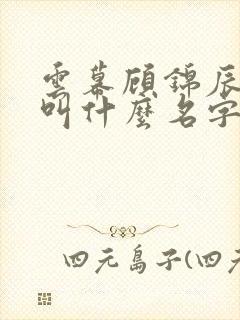 雲幕顧錦辰
叫什麼名字
四元島子(四元